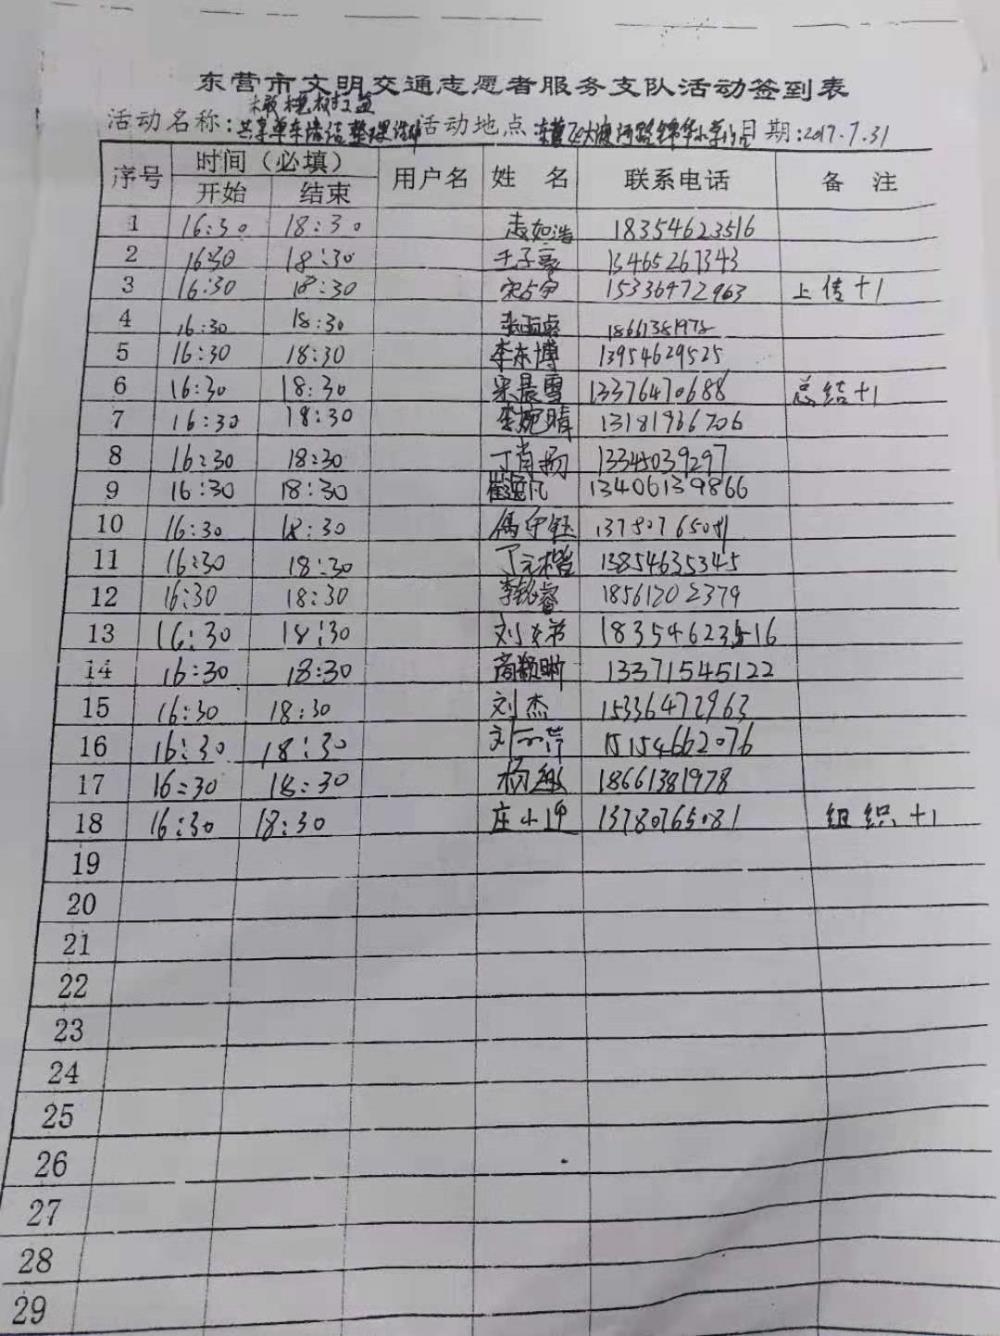 东营市文明交通志愿者服务支队活动签到表
橄榄树公益
活动名称:共享单车清洁整理活动 活动地点 东营区大渡河路锦华小学门口 日期:2017.7.31
序号 时间(必填) 用户名 姓 名 联系电话 备 注
开始 结束
1 16:30 18:30 志如浩 18354623516
2 16:30 18:30 王子豪 13465267343
3 16:30 18:30 宋占宇 15336472963 上传+1
4 16:30 18:30 18661381978
5 16:30 18:30 李东博 13954629525
6 16:30 18:30 宋晨雪 13376470688 总结+1
7 16:30 18:30 李婉晴 13181966706
8 16:30 18:30 丁肖扬 13345039297
9 16:30 18:30 崔逸凡 13406139866
10 16:30 18:30 13780765081
11 16:30 18:30 丁元楷 13854635345
12 16:30 18:30 李铭睿 18561202379
13 16:30 18:30 18354623516
14 16:30 18:30 高颖晰 13371545122
15 16:30 18:30 刘杰 15336472963
16 16:30 18:30 15154662076
17 16:30 18:30 18661381978
18 16:30 18:30 庄小连 13780765081 组织+1
19
20
21
22
23
24
25
26
27
28
29